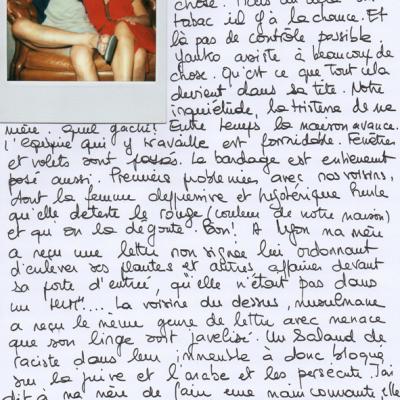 chose. Nous au
tabac il y a la chance. Et
là pas de contrôle possible.
Yanko assiste à beaucoup de
chose. Qu'est ce que tout cela
devient dans sa tête. Notre
inquiétude, la tristesse de ma
mère. Quel gachi! Entre temps la maison avance.
L'équipe qui y travaille est formidable. Fenêtres
et volets sont posés. Le bardage est entièrement
posé aussi. Premiers problèmes avec nos voisins,
dont la femme dépressive et hystérique hurle
qu'elle déteste le rouge (couleur de notre maison)
et qu'on la dégoute. Bon! A Lyon ma mère
a reçu une lettre non signée lui ordonnant
d'enlever ses plantes et autres affaires devant
sa porte d'entrée, qu'elle n'était pas dans
un
La voisine du dessus, musulmane
a reçu le même genre de lettre avec menace
que son linge soit javelisé. Un salaud de
raciste dans leur immeuble à donc bloqué
sur la juive et l'arabe et les persécute. J'ai
dit à ma mère de faire une main courante, elle